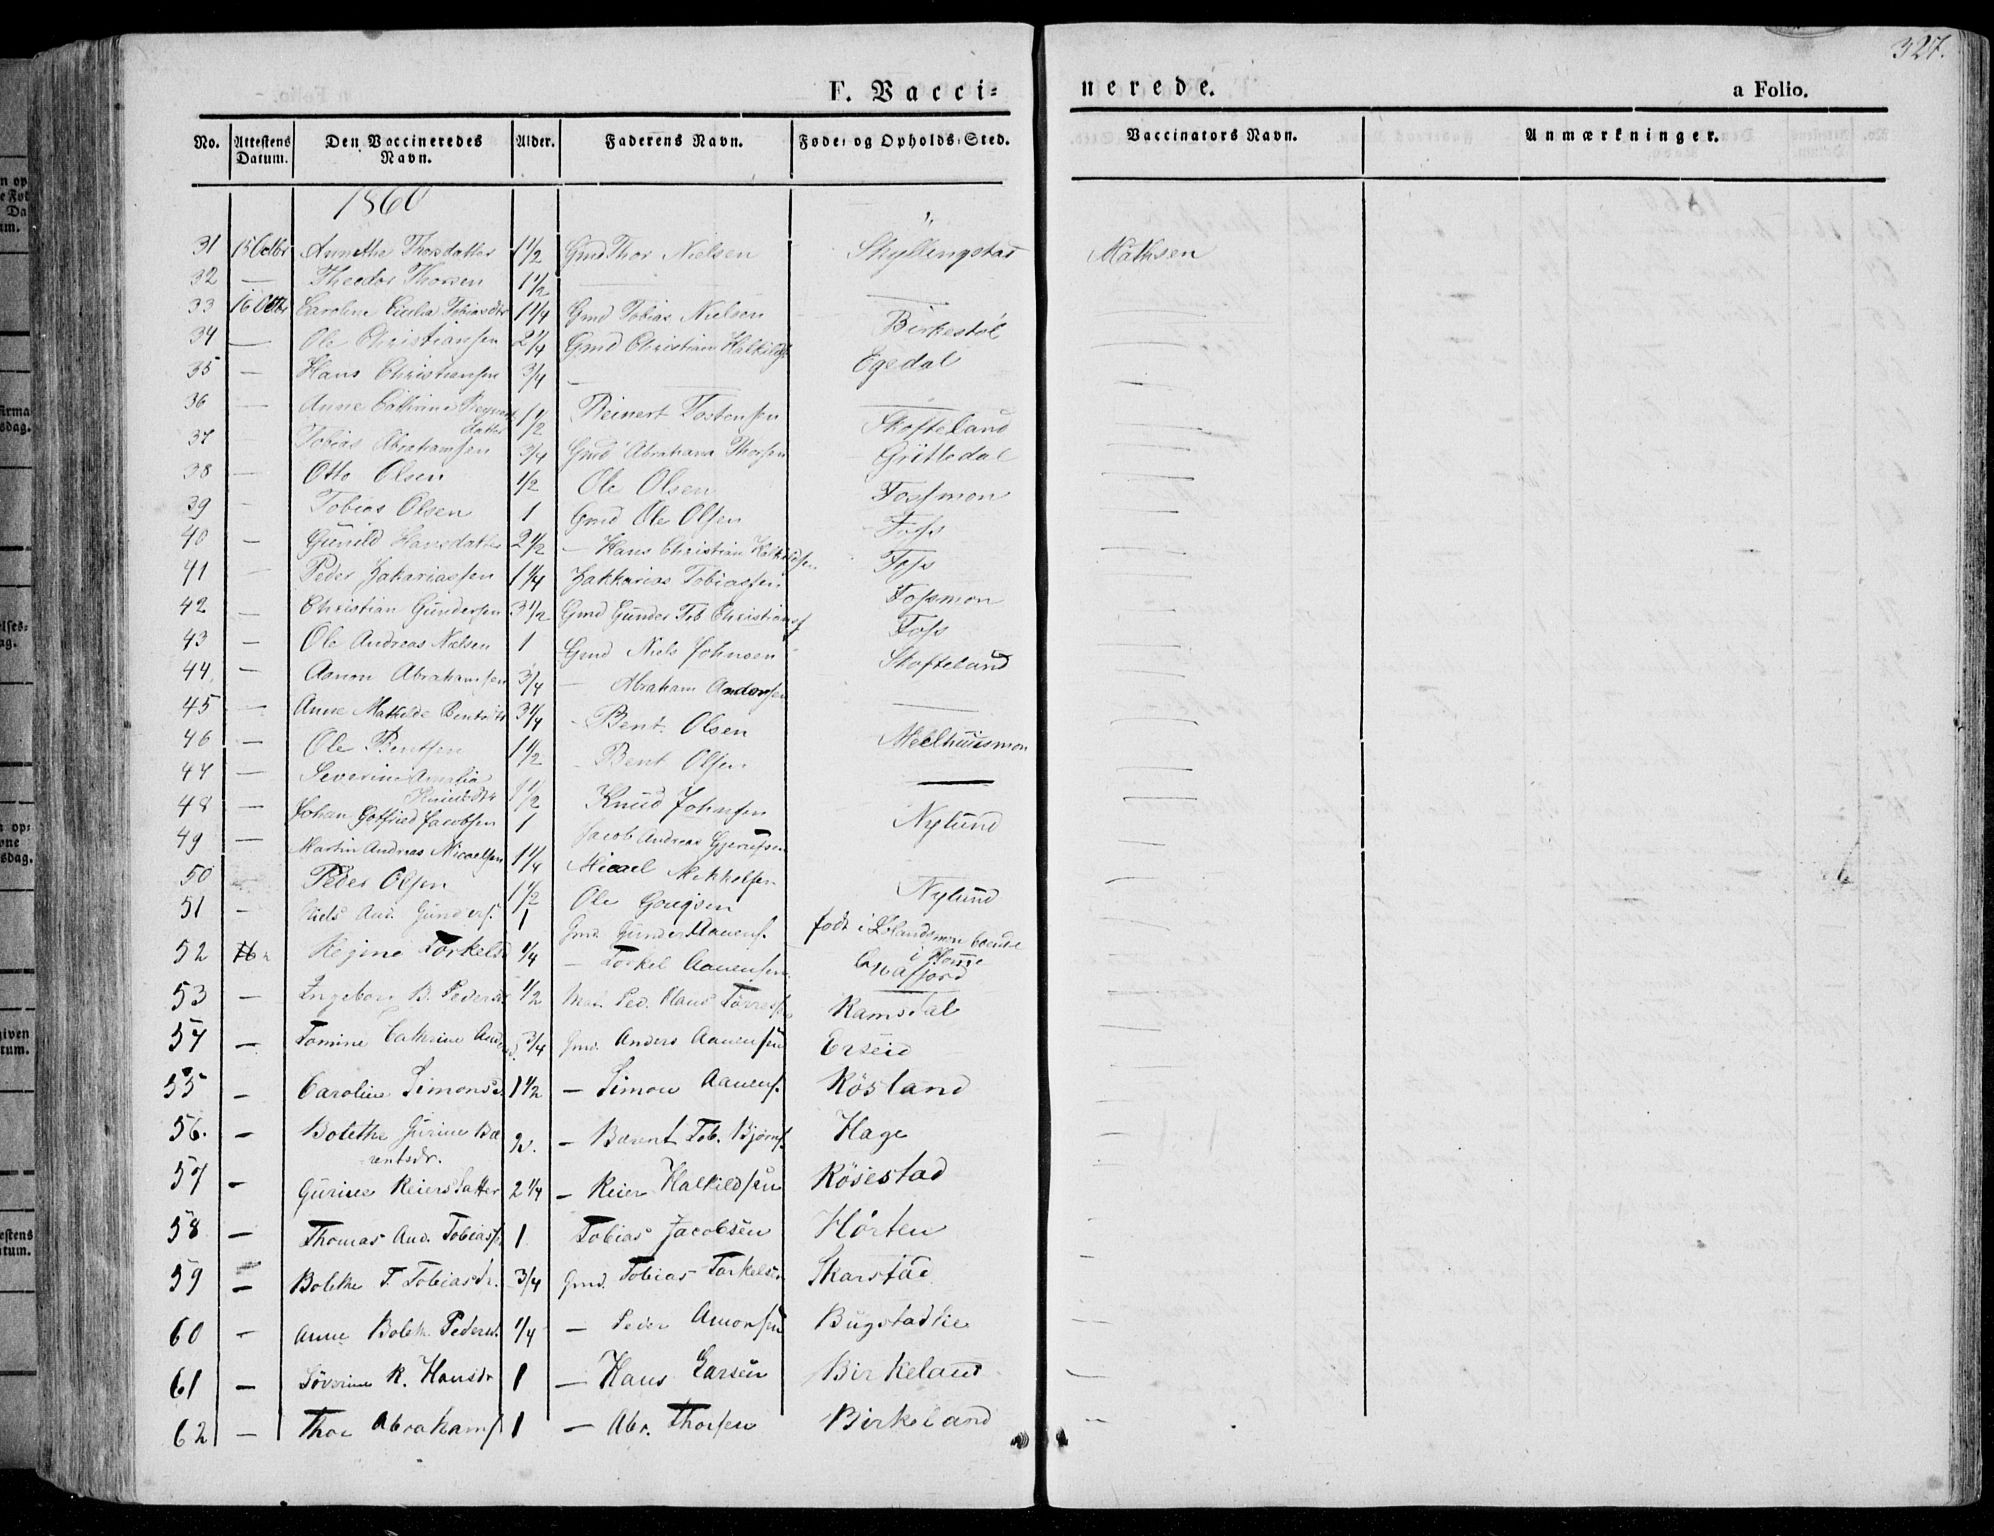 327.
F. Vacci= nerede. a Folio.
No. Attestens Datum. Den Vaccineredes Navn. Alder. Faderens Navn. Føde- og Opholds-Sted. Vaccinators Navn. Anmærkninger.
1860
31 15 Octbr Annethe Thorsdatter 1 1/2 Gmd Thor Nielsen Skyllingstad Mathsen
32 — Theodor Thorsen 1 1/2 — —
33 16 Octbr Caroline Tobiasdtr 1 1/4 Gmd Tobias Nielsen Birkestöl —
34 — Ole Christiansen 2 1/4 Gmd Christian Halkilds Egedal —
35 — Hans Christiansen 3/4 — — —
36 — Anne Cathrine Reynerts datter 1 1/2 Reinert Tostensen Skofteland —
37 Tobias Abrahamsen 3/4 Gmd Abraham Thorsen Gritledal —
38 — Otto Olsen 1/2 Ole Olsen Fossmon —
39 — Tobias Olsen 1 Gmd Ole Olsen Foss —
40 — Gunild Hansdatter 2 1/2 — Hans Christian Halkildsen Foss —
41 — Peder Zakariassen 1 1/4 Zakkarias Tobiassen Fossmon —
42 — Christian Gundersen 3 1/2 Gmd Gunder Tob Christians Foss —
43 — Ole Andreas Nielsen 1 Gmd Niels Johnsen Skofteland —
44 — Aanon Abrahamsen 3/4 — Abraham Andersen — —
45 — Anne Mathilde Bentsdtr 3 1/4 — Bent Olsen Meelhuusmon —
46 — Ole Bentsen 1 1/2 — Bent Olsen — —
47 — Severine Amalia Knudsdtr 1 1/2 Knud Johnsen Nylund —
48 — Johan Gotfried Jacobsen 1 Jacob Andreas Gjerulfsen
49 — Martin Andreas Micaelsen 1 1/4 Micael Mekkelsen Nylund —
50 Peder Olsen 1 1/2 Ole —
51 — Niels And. Gunders. 1 Gmd. Gunder Aanens. født i Islandsmon boende i —
52 16 Regine Torkelsd 1/4 — Torkel Aanensen —
53 — Ingeborg B. Pedersd 1/2 Ped. Hans Ramsdal —
54 — Tomine Cathrine Andersd. 3/4 Gmd. Anders Aanensen Erseid —
55 — Caroline Simonsd 1 1/2 — Simon Aanens. Rösland —
56. — Bolethe Gurine Ba rentsdr. 2. — Barent Tob. Bjørns. Hage —
57 — Gurine Reiersdatter 2 1/4 — Reier Halkildsen Rösestad —
58 — Thomas And. Tobiass 1 Tobias Jacobsen Hörten
59 — Bolethe T. Tobiasdr. 3/4 Gmd. Tobias Torkelsen Skarstad
60 — Anne Boleth. Pedersd. 1/4 — Peder Amonsen Bugstadlie —
61 — Söverine K. Hansdr 1 — Hans Larsen Birkeland —
62 — Thor Abrahams 1 — Abr. Thorsen Birkeland —